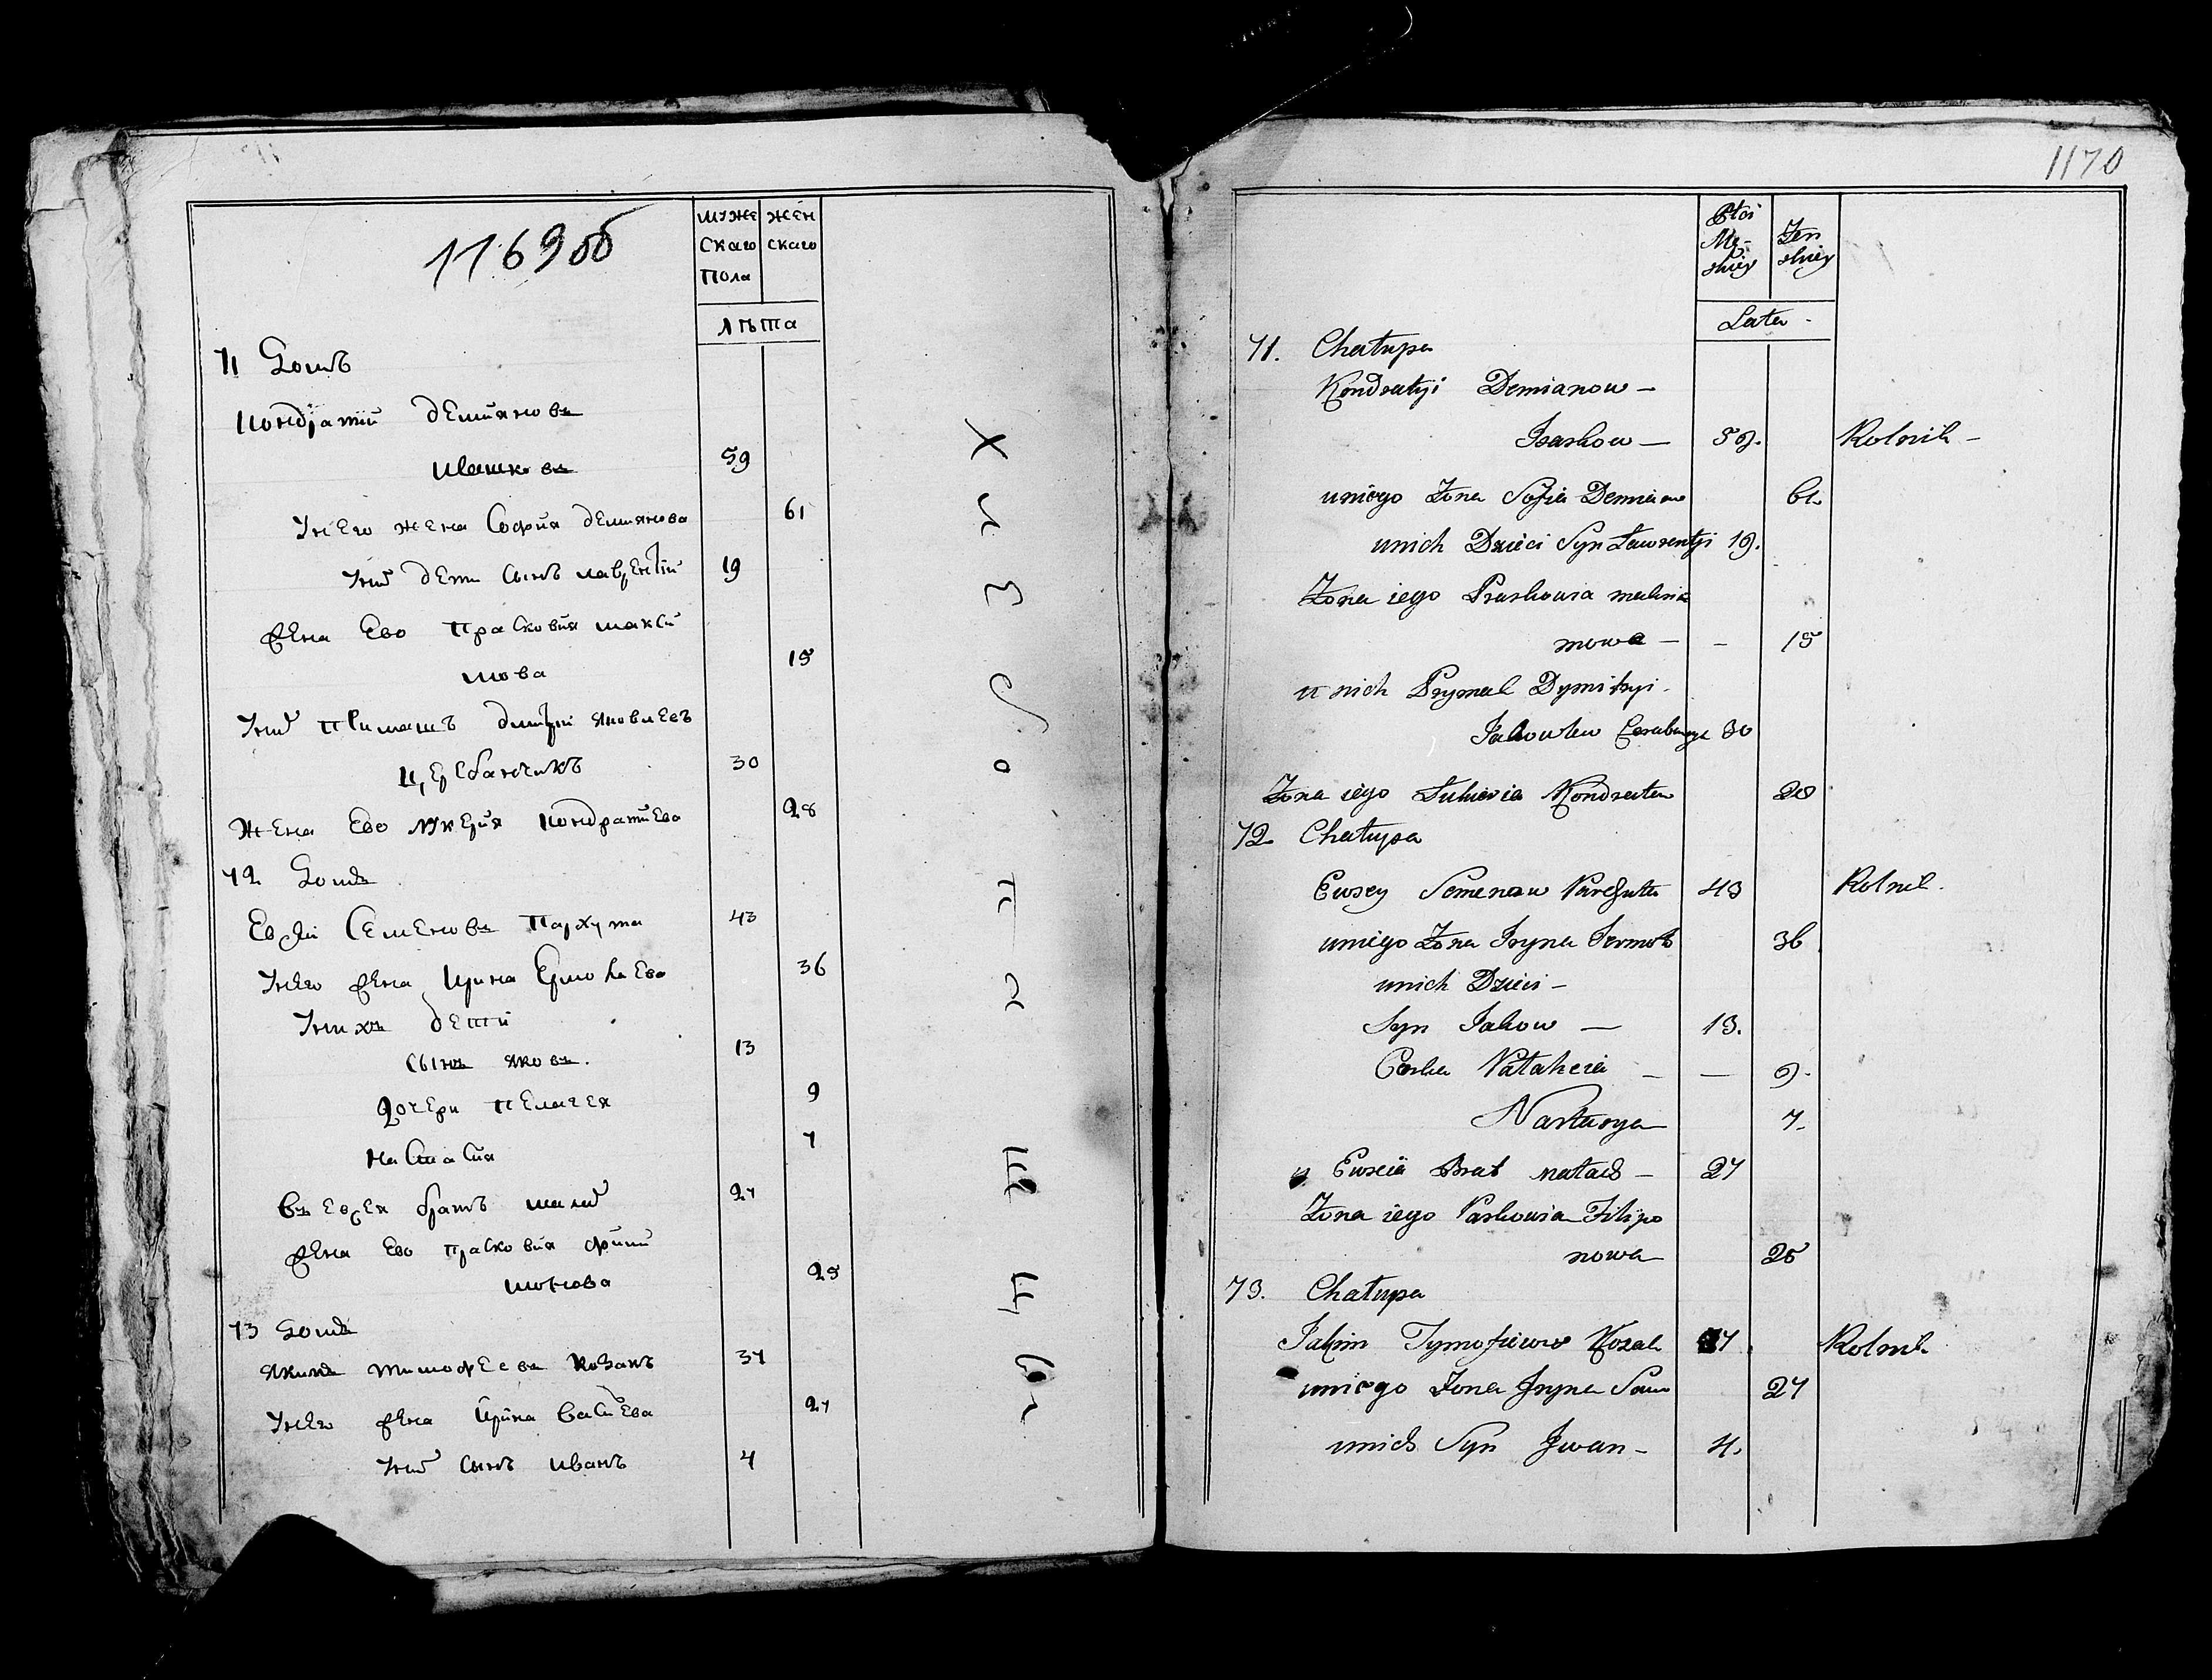 1169об
муже
скаго
пола
жен
скаго
лѣта
71 Домъ
Кондратий демияновъ
Ивашковъ 59
Унего жена София демянова 61
Уних дети Сынъ лаврентий 19
Жена Ево Прасковия макси
мова 15
Уних Примашъ дмитрий яковлевъ
30
Жена Ево лукерия кондратиева 28
72 Домъ
Евсей Семеновъ Пархута 43
Унего Жена Ирина Ермолаева 36
Унихъ дети
Сынъ яковъ 13
Дочери пелагея 9
Настасия 7
Въ евсея братъ 27
Жена Ево прасковия фили
монова 25
73 Домъ
якимъ тимофеевъ козакъ 37
Унего Жена Ирина 27
Уних Сынъ иванъ 4
1170
Płci
Mę-
skiey
Żen
skiey
Lata
71. Chałupa
Kondratyi Demianow —
Iwaszkow — 59. Rolnik —
uniego Żona Sofia Demiano 61
unich Dzieci Syn Ławrentyi 19.
Żona iego Praskowia maksi
mowa — — 15
u nich Prymak Dymitryi
Jakowlew 30
Żona iego Łukieria Kondratew 28
72 Chałupa
Ewsey Semenow Parchuta 43 Rolnik.
uniego Żona Iryna Iermoł 36
unich Dzieci —
Syn Jakow — 13.
Corka Pałaheia — — 9.
Nastasya — 7.
u Ewseia Brat — 27
Żona iego Paskowia Filipo
nowa — 25
73. Chałupa
Jakim Tymofieiow Kozak 37 Rolnik
uniego Żona Iryna Saw 27
unich Syn Iwan — 4.